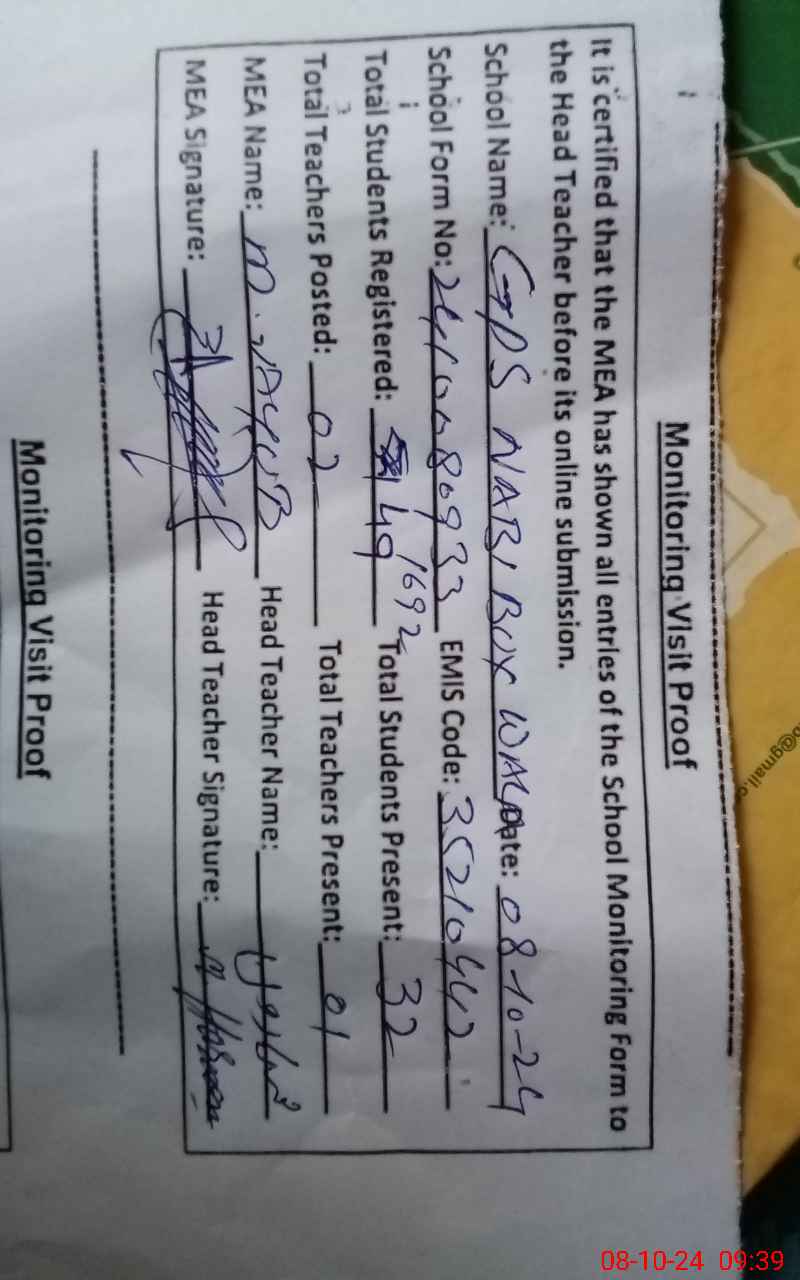 Monitoring Visit Proof
It is certified that the MEA has shown all entries of the School Monitoring Form to
the Head Teacher before its online submission.
School Name: GPS NABI BUX WALA Date: 08-10-24
School Form No: EMIS Code: 35210442
1692
Total Students Registered: 49 Total Students Present: 32
Total Teachers Posted: 02 Total Teachers Present: 01
MEA Name: M. AYUB Head Teacher Name:
MEA Signature: Head Teacher Signature:
Monitoring Visit Proof
@gmail.c
08-10-24 09:39